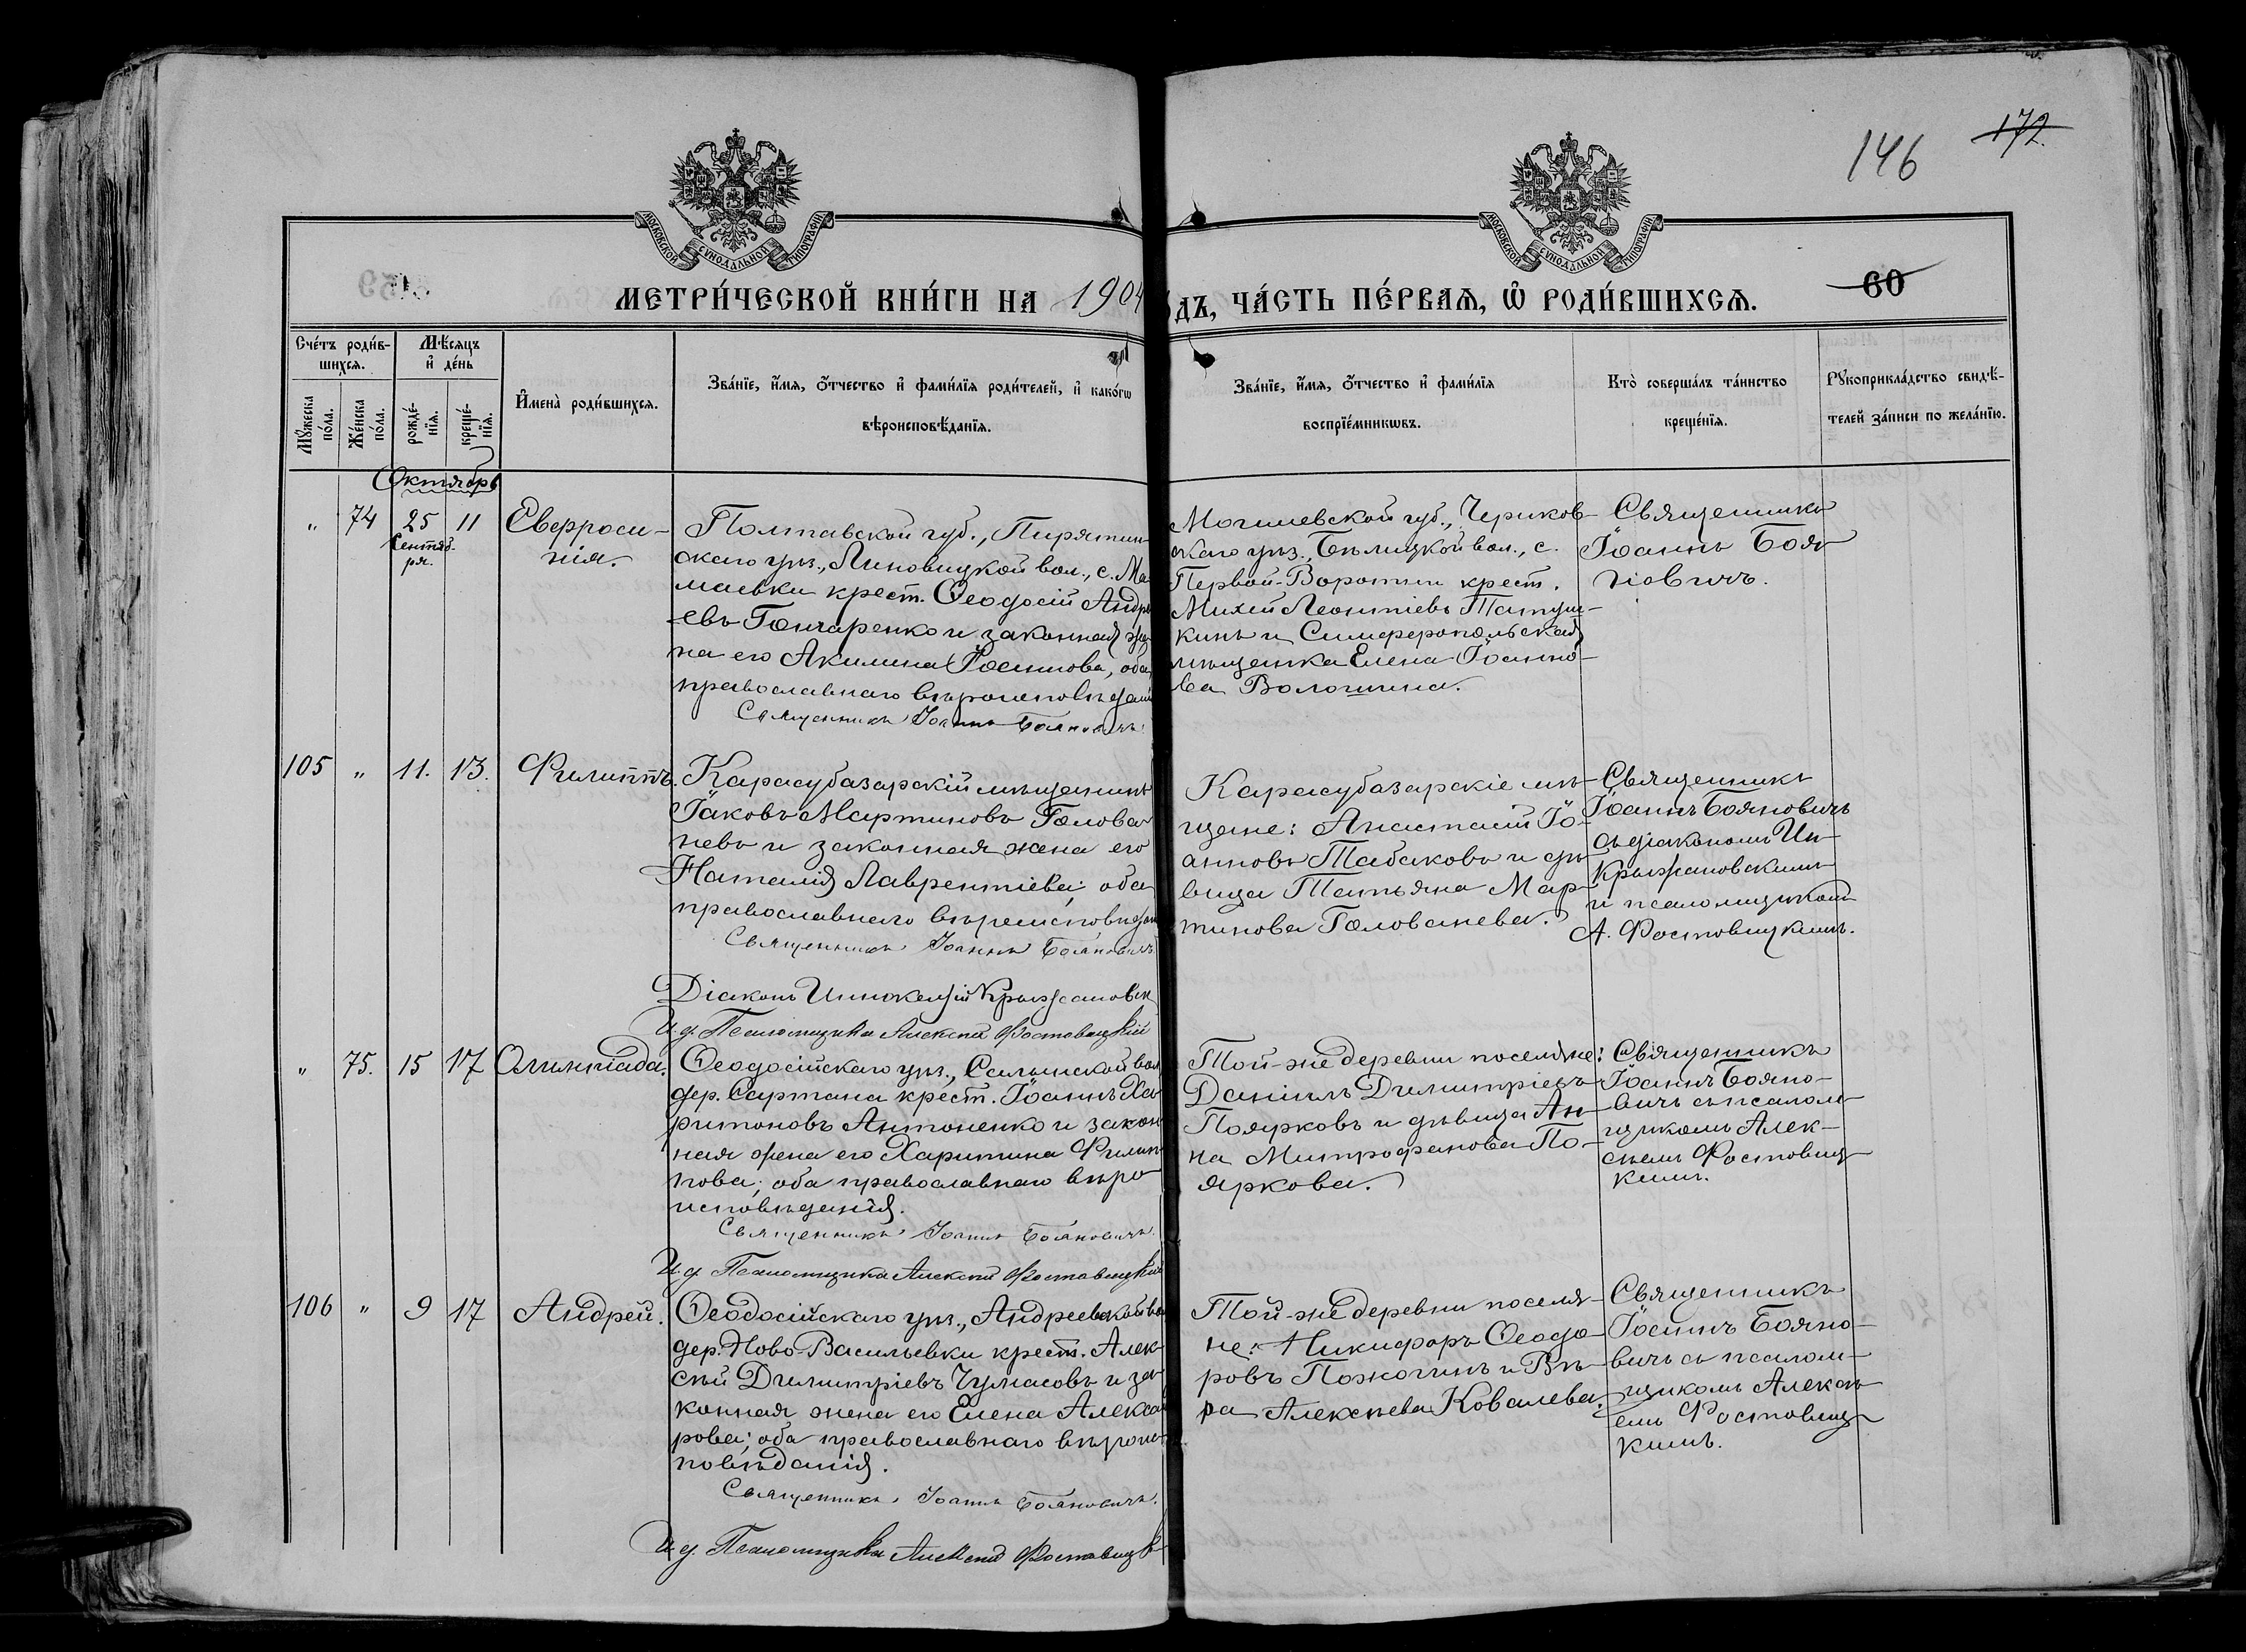 146
172.
МОСКОВСКОЙ СѴНОДАЛЬНОЙ ТИПОГРАФІИ
МОСКОВСКОЙ СѴНОДАЛЬНОЙ ТИПОГРАФІИ
60
МЕТРИ́ЧЕСКОЙ КНИ́ГИ НА 1904
ОДЪ, ЧА́СТЬ ПЕ́РВАЯ, Ѡ РОДИ́ВШИХСЯ.
Сче́тъ роди́вшихся.
Мꙋ́жеска по́ла.
Же́нска по́ла.
Мѣ́сяцъ и҆ де́нь
рожде́нїя.
креще́нїя.
И҆мена̀ роди́вшихся.
Зва́нїе, и҆́мя, ѻ҆́тчество и҆ фами́лїя роди́телей, и҆ како́гѡ
вѣроисповѣ́данїя.
Зва́нїе, и҆́мя, ѻ҆́тчество и҆ фами́лїя
воспрїе́мникѡвъ.
Кто̀ соверша́лъ та́инство
креще́нїя.
Рꙋкоприкла́дство свидѣ́-
телей за́писи по жела́нїю.
Октябрь
" 74 25 Сентяб-
ря. 11
Евфроси-
нія.
Полтавской губ., Пирятин
скаго уѣз., Линовицкой вол., с. Ма
маевки крест. Ѳеодосій Андре
евъ Гончаренко и законная же
на его Акилина Іоаннова, оба
православнаго вѣроисповѣдані
Священникъ Іоаннъ Бояновичъ.
Могилевской губ., Чериков-
скаго уѣз., Бѣлицкой вол., с.
Первой-Воротни крест.
Михей Леонтіевъ Татуш-
кинъ и Симферопольская
мѣщанка Елена Іоанно-
ва Волошина.
Священникъ
Іоаннъ Боя-
новичъ.
105 " 11. 13.
Филиппъ.
Карасубазарскій мѣщанинъ
Іаковъ Мартиновъ Голова
невъ и законная жена его
Наталія Лаврентіева; оба
православнаго вѣроисповѣдан
Священникъ Іоаннъ Бояновичъ
Діаконъ Иннокентій Крыжановск
И. д. Псаломщика Алексѣй Фостовицкій
Карасубазарскіе мѣ-
щане: Анастасій Іо-
анновъ Табаковъ и дѣ-
вица Татьяна Мар-
тинова Голованева.
Священникъ
Іоаннъ Бояновичъ
съ діакономъ Ин.
Крыжановскимъ
и псаломщикомъ
А. Фостовицкимъ.
" 75. 15 17
Олимпіада.
Ѳеодосійскаго уѣз., Салынской вол
дер. Сартана крест. Іоаннъ Ха
ритоновъ Антоненко и закон
ная жена его Харитина Филип
пова; оба православнаго вѣро
исповѣданія.
Священникъ Іоаннъ Бояновичъ.
И. д. Псаломщика Алексѣй Фостовицкій
Той-же деревни поселяне:
Даніилъ Димитріевъ
Поярковъ и дѣвица Ан-
на Митрофанова По-
яркова.
Священникъ
Іоаннъ Бояно-
вичъ съ псалом-
щикомъ Алек-
сѣемъ Фостовиц-
кимъ.
106 " 9 17
Андрей.
Ѳеодосійскаго уѣз., Андреевской во
дер. Ново-Васильевки крест. Алек
сѣй Димитріевъ Чумасовъ и за
конная жена его Елена Алекса
рова; оба православнаго вѣроис
повѣданія.
Священникъ Іоаннъ Бояновичъ.
И. д. Псаломщика Алексѣй Фостовицк
Той-же деревни поселя-
не: Никифоръ Ѳеодо-
ровъ Пожогинъ и Вѣ-
ра Алексѣева Ковалева.
Священникъ
Іоаннъ Бояно-
вичъ съ псалом-
щикомъ Алексѣ-
емъ Фостовиц-
кимъ.